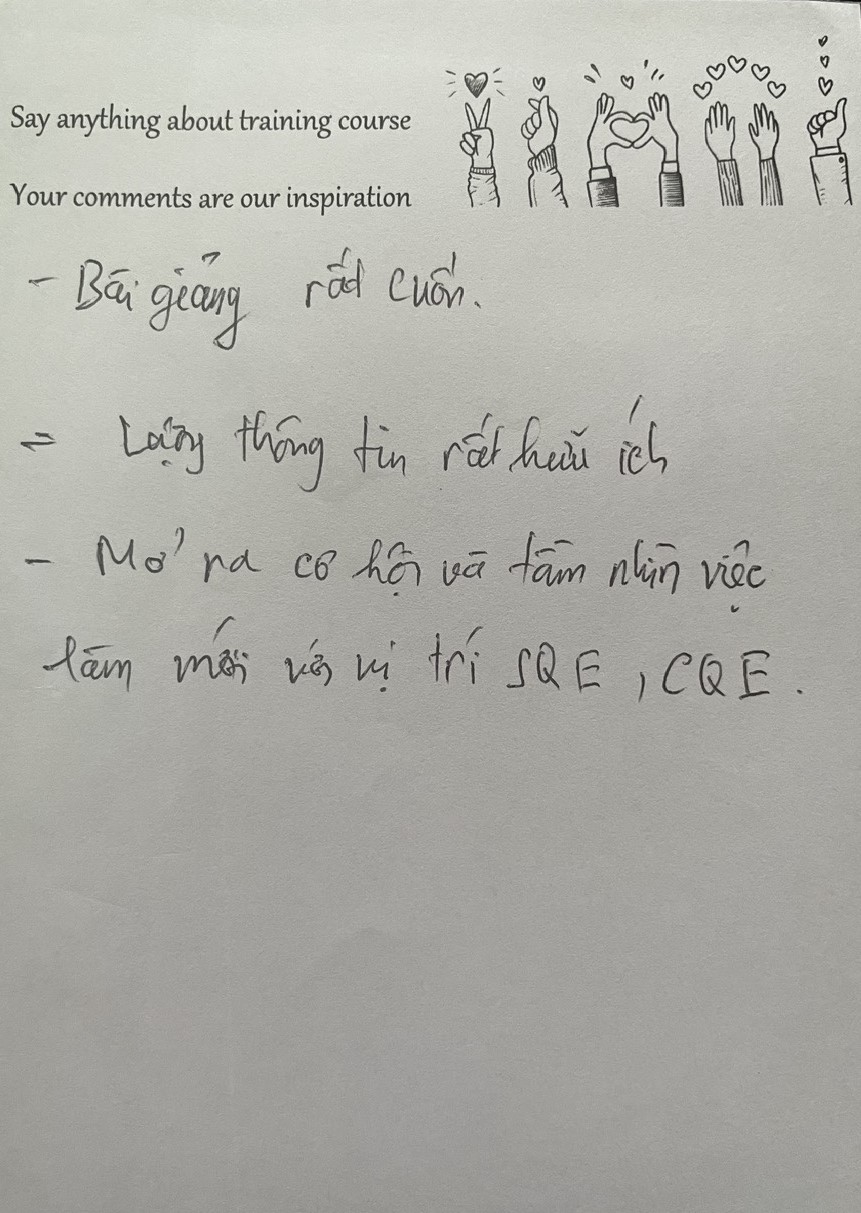 Say anything about training course
Your comments are our inspiration
- Bài giảng rất cuốn.
= Lượng thông tin rất hữu ích
- Mở ra cơ hội và tầm nhìn việc
làm mới với vị trí SQE, CQE.